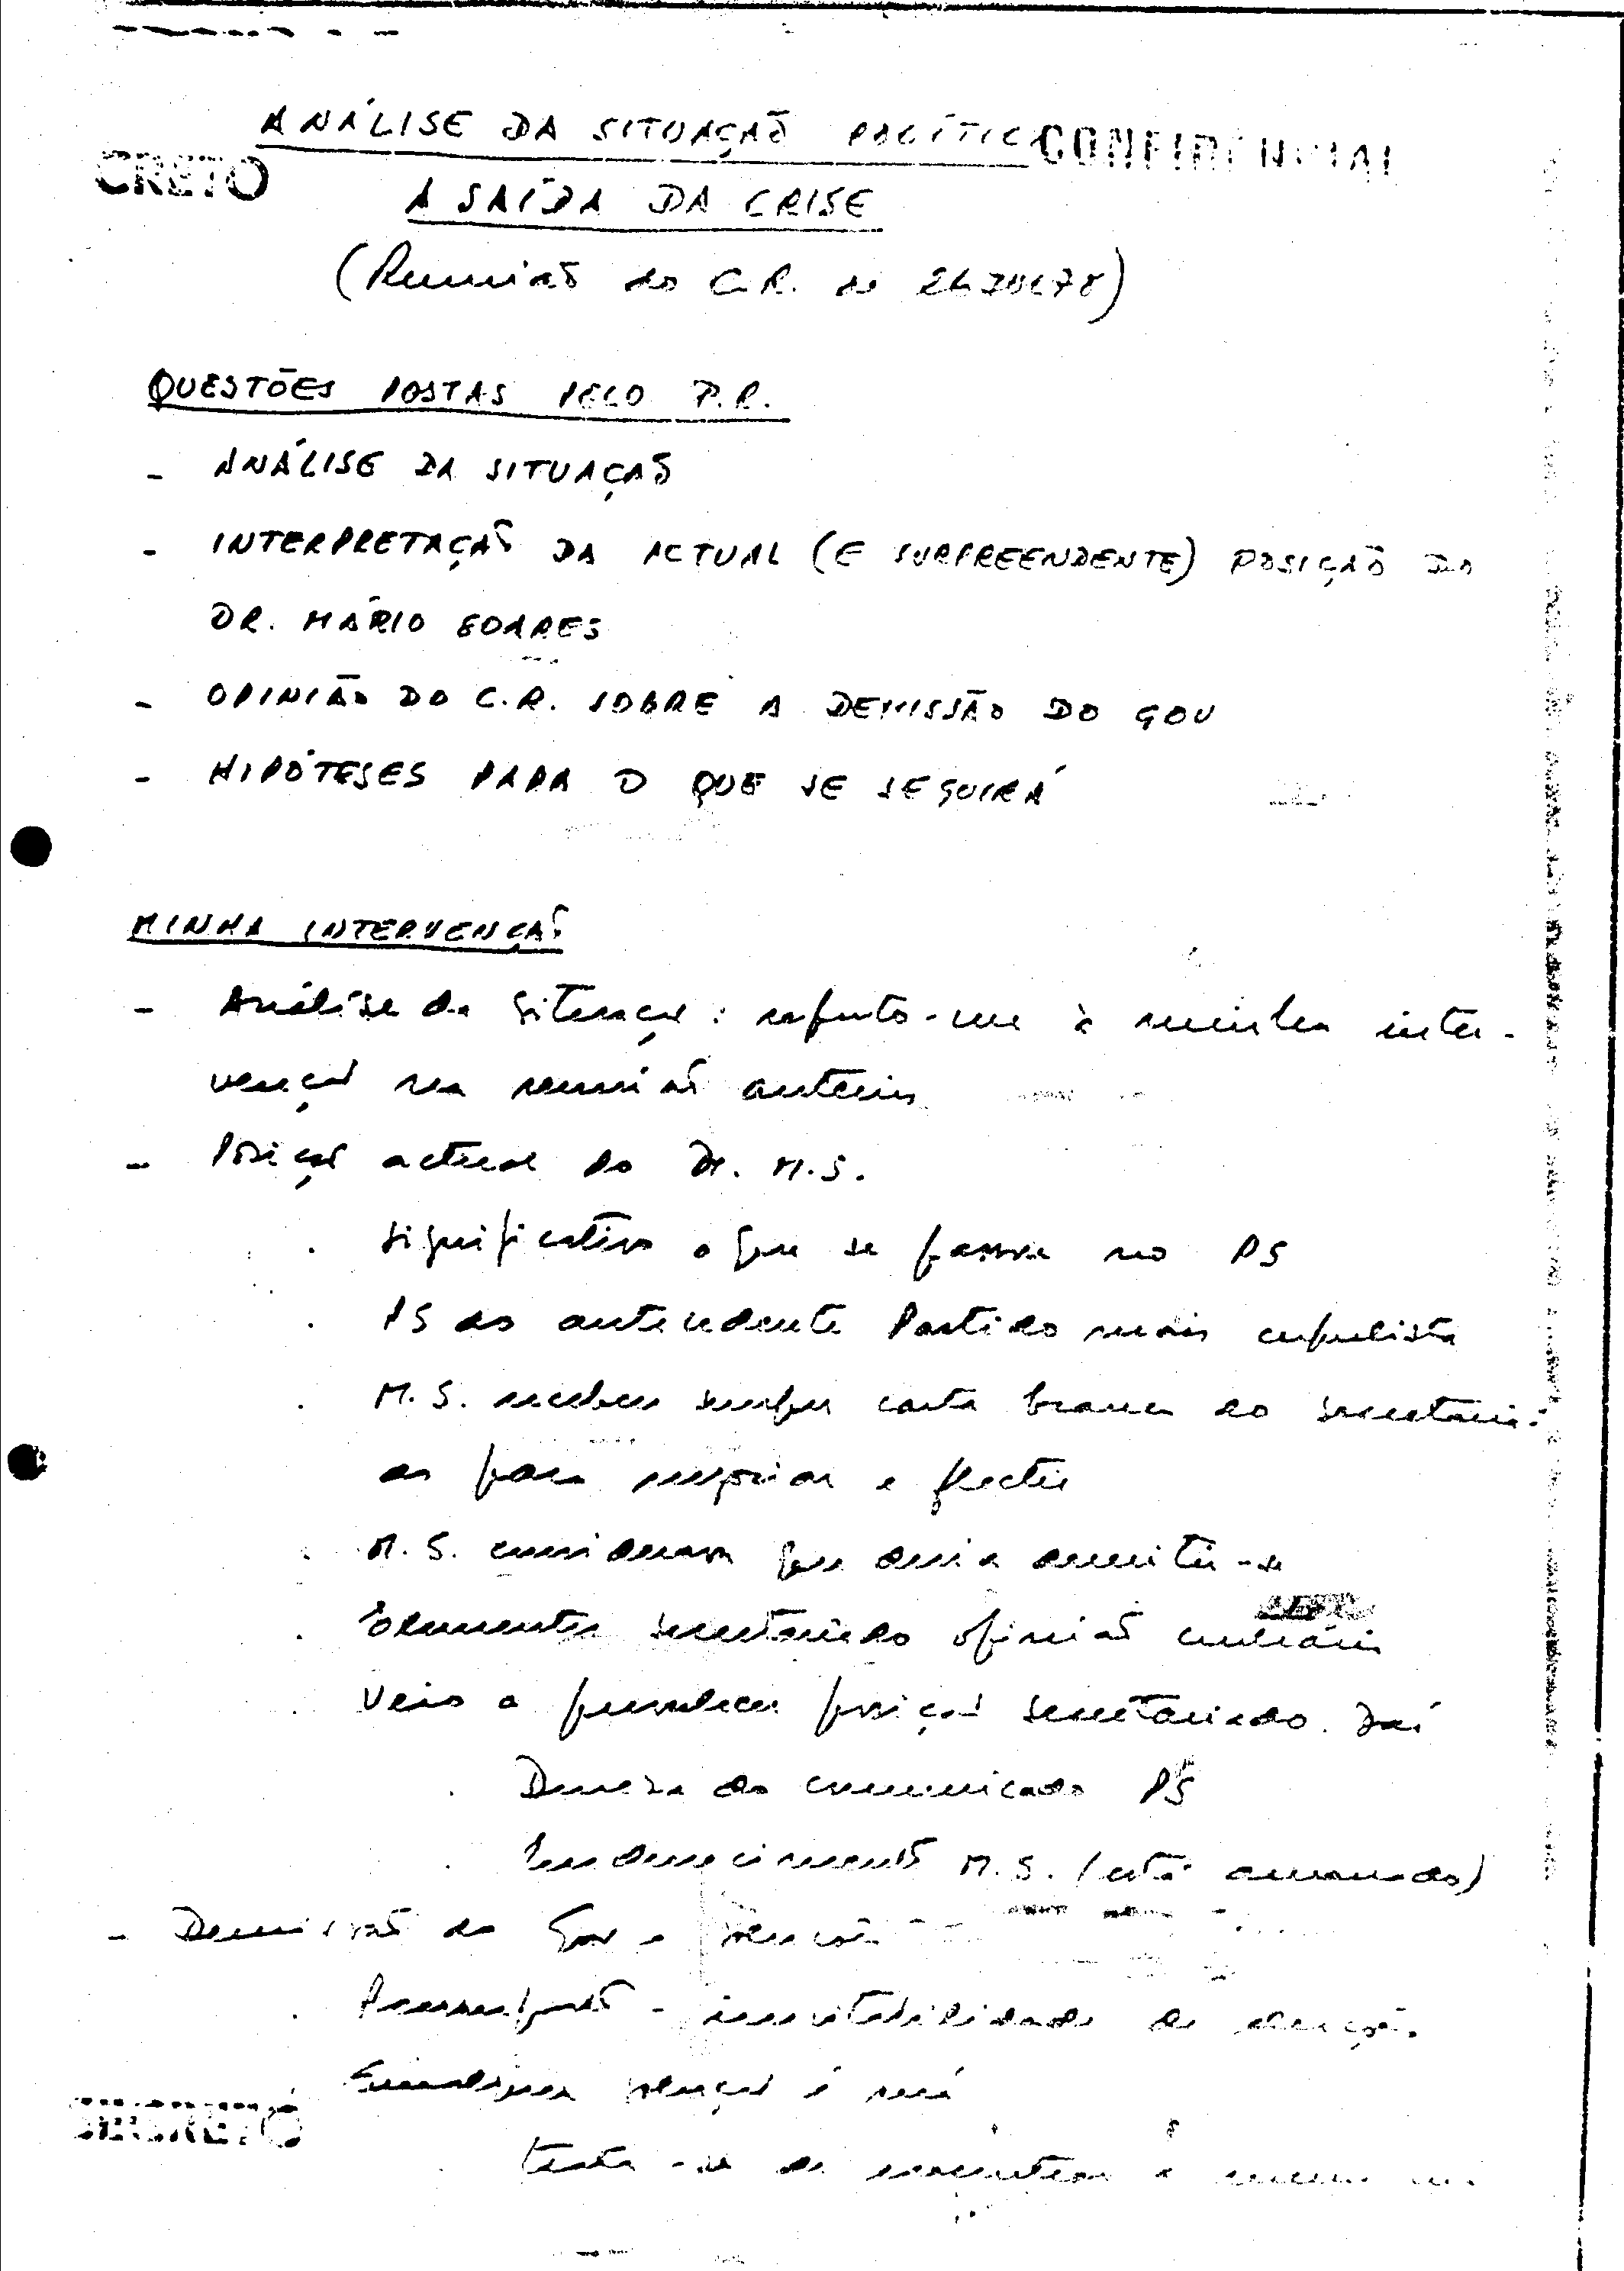 ANÁLISE DA SITUAÇÃO POLÍTICA CONFIDENCIAL
CRETO
A SAÍDA DA CRISE
(Reunião do C.R. de 26JUL78)
QUESTÕES POSTAS PELO P.R.
- ANÁLISE DA SITUAÇÃO
- INTERPRETAÇÃO DA ACTUAL (E SURPREENDENTE) POSIÇÃO DO
DR. MÁRIO SOARES
- OPINIÃO DO C.R. SOBRE A DEMISSÃO DO GOV
- HIPÓTESES PARA O QUE SE SEGUIRÁ
MINHA INTERVENÇÃO
- Análise da situação: reporto-me à minha inter-
venção na reunião anterior
- Posição actual do Dr. M.S.
. Significativo o que se passou no PS
. PS do antecedente Partido mais cupulista
. M.S. recebeu sempre carta branca do secretaria-
do para negociar e flectir
. M.S. considerava que devia demitir-se
. secretariado opinião contrária
. Veio a prevalecer posição secretariado. Daí
. Dureza do comunicado PS
. Endurecimento M.S. (está amarrado)
- Demissão do Gov e
. - inevitabilidade de
. solução é má
SECRETO
. Trata-se de